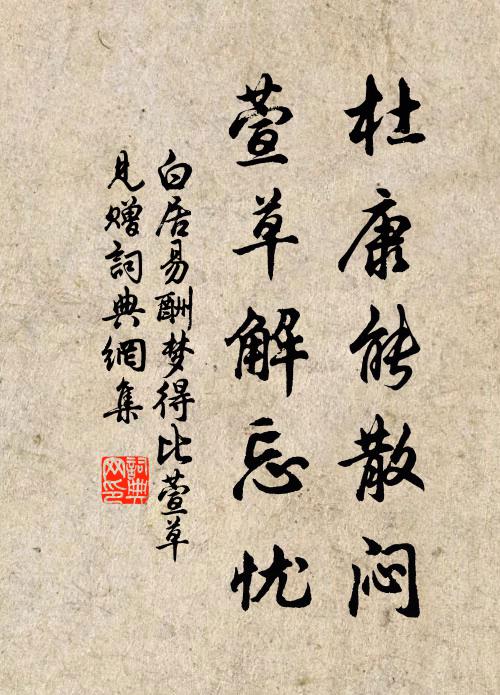 杜康能散闷
萱草解忘忧
白居易酬梦得比萱草
见赠詞典網集
詞典网印